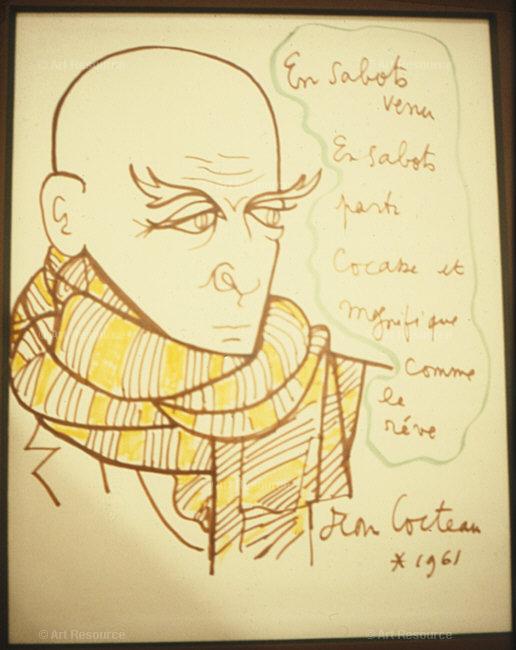 En sabots
venu
En sabots
parti
Cocasse et
magnifique
comme
le
rêve
Jean Cocteau
* 1961
© Art Resource
© Art Resource
© Art Resource
© Art Resource